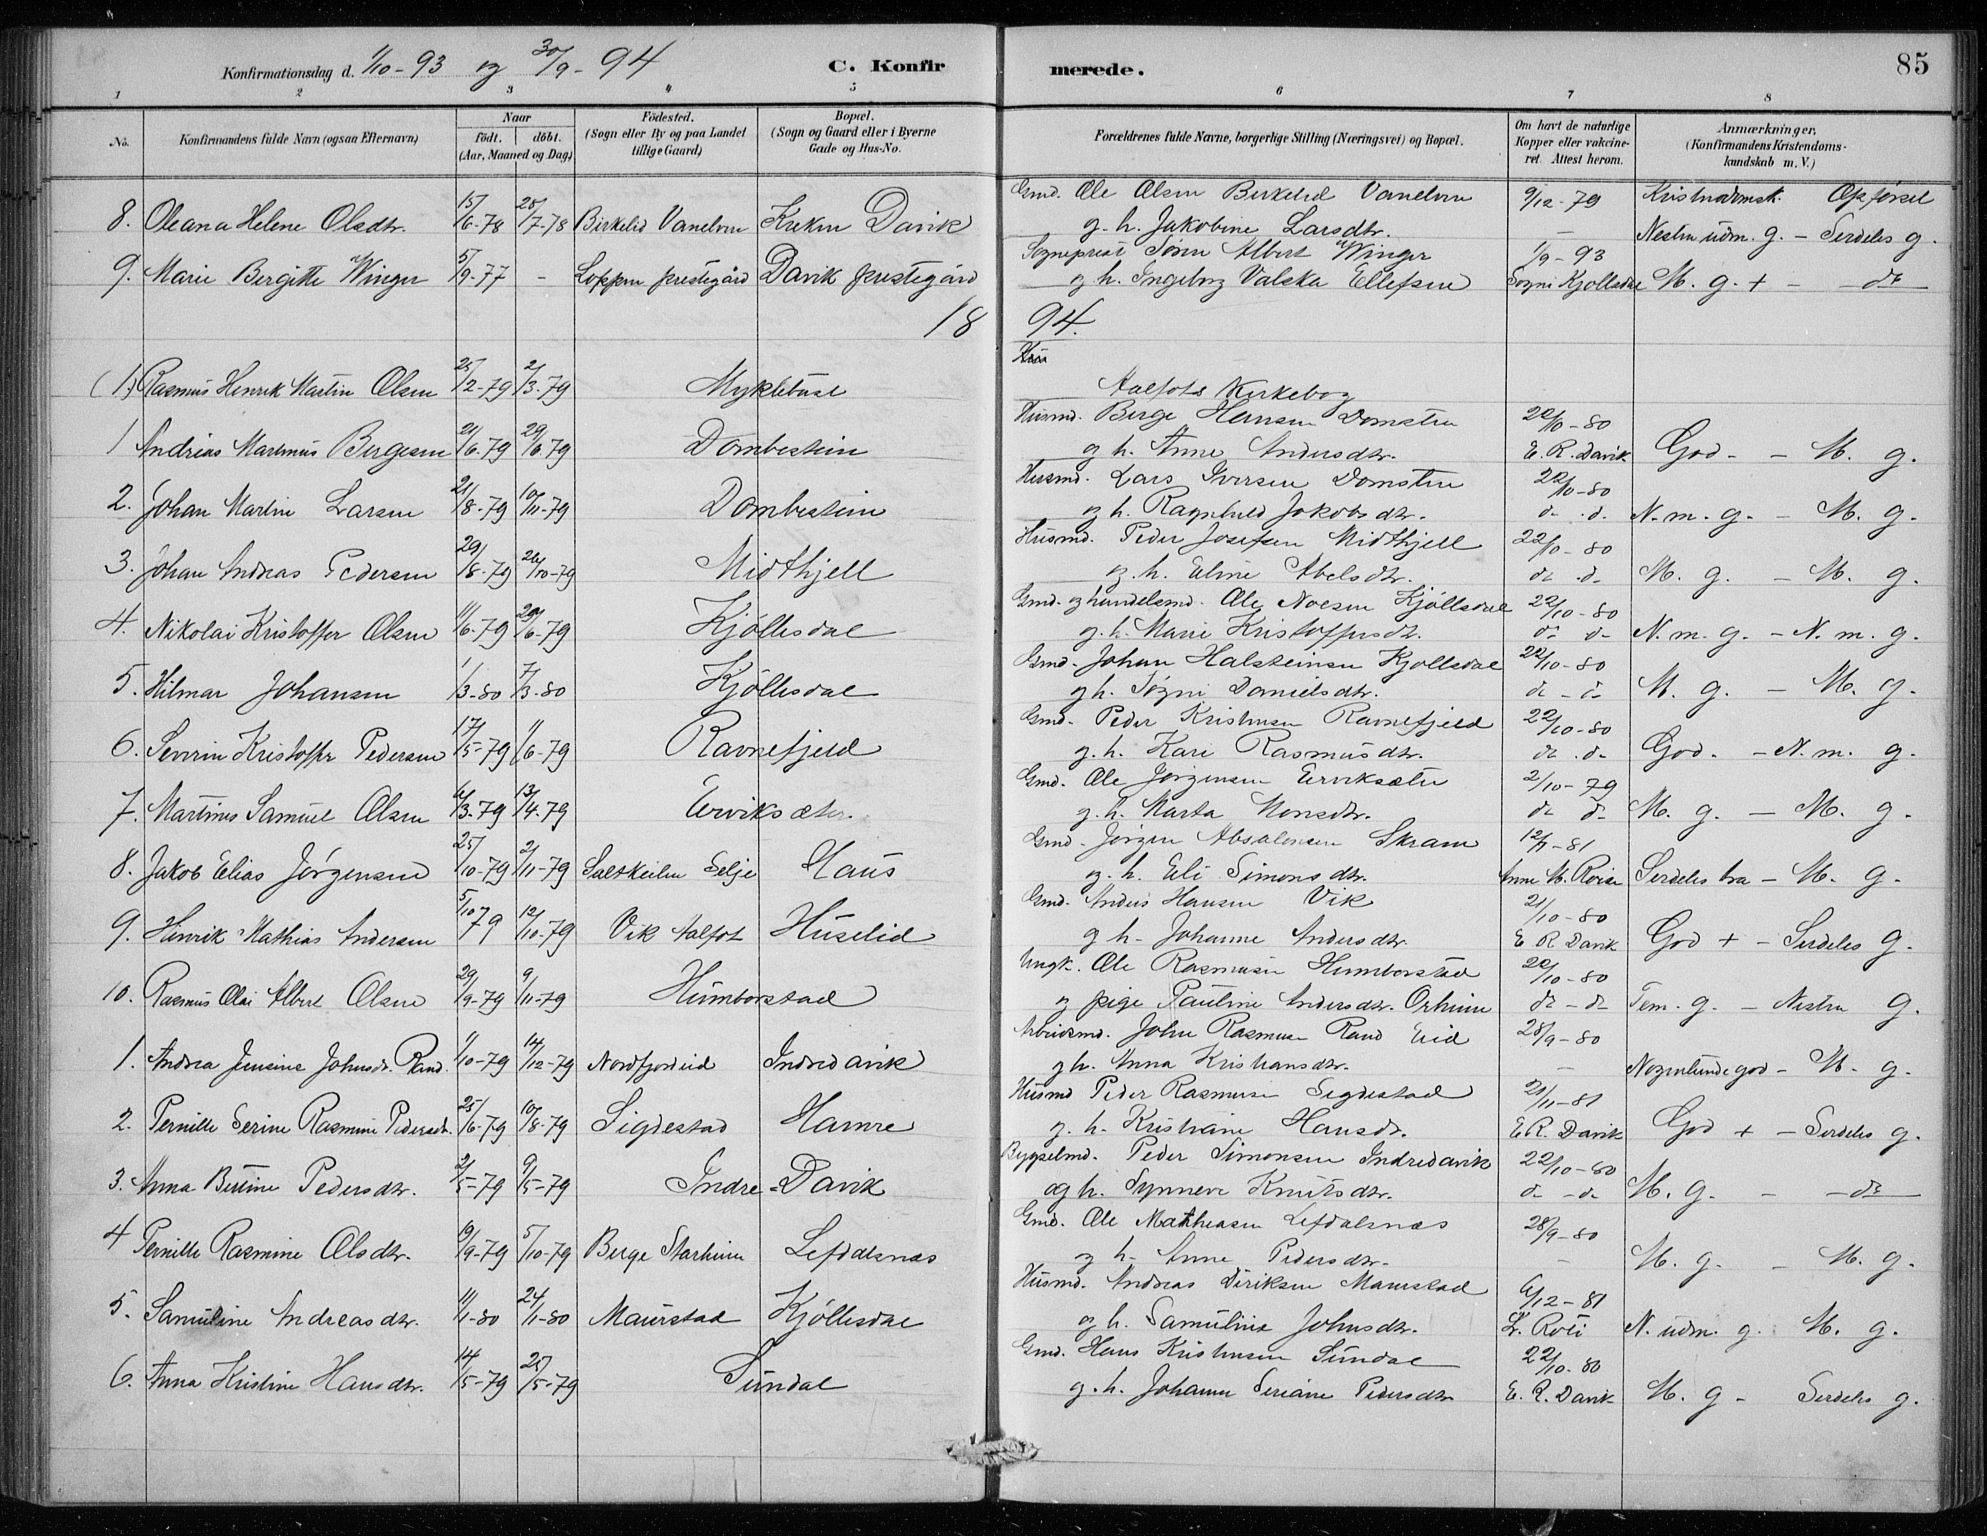 Konfirmationsdag d. 1/10-93 og 30/9-94 C. Konfirmerede. 85
1 2 3 4 5 6 7 8
No.
Konfirmandens fulde Navn (ogsaa Efternavn)
Naar
födt. döbt.
(Aar, Maaned og Dag)
Födested.
(Sogn eller By og paa Landet
tillige Gaard)
Bopæl.
(Sogn og Gaard eller i Byerne
Gade og Hus-No.
Forældrenes fulde Navne, borgerlige Stilling (Næringsvei) og Bopæl.
Om havt de naturlige
Kopper eller vakcine-
ret. Attest herom.
Anmærkninger.
(Konfirmandens Kristendoms-
kundskab m. V.)
8. Oleana Helene Olsdtr. 15/6-78 28/7-78 Birkelid Vanelven Davik
Gmd. Ole Olsen Birkelid Vanelven 9/12-79 Opførsel
g. h. Jakobine Larsdtr. — Nesten udm. g. - Serdeles g.
9. Marie Bergitte Winger 5/9-77 - Loppen prestegård Davik prestegård
Sogneprest Søren Albert Winger 1/9-93
og h. Ingeborg Valska Ellefsen M. g. + - do
18 94.
(1.) Rasmus Henrik Martin Olsen 25/2-79 2/3-79 Myklebust
Aalfots Kirkebog
1 Andreas Martinus Bergesen 21/6-79 29/6-79 Dombestein
Husmd. Berge Hansen Domsten 22/10-80
og h. Anne Andersdtr. E. R. Davik God - - M. g.
2. Johan Martin Larsen 21/8-79 10/11-79 Dombestein
Husmd. Lars Iversen Domsten 22/10-80
og h. Ragnhild Jakobsdtr. do do N. m. g. - M. g.
3. Johan Andreas Pedersen 29/8-79 26/10-79 Midthjell
Husmd. Peder Josefsen Midthjell 22/10-80
og h. Eline Abelsdtr. do do M. g. - M. g.
4. Nikolai Kristoffer Olsen 11/6-79 29/6-79 Kjöllesdal
Gmd. og handelsmd. Ole Kjöllsdal 22/10-80
g. h. Marie Kristoffersdtr. do do N. m. g. - N. m. g.
5. Hilmar Johansen 1/3-80 7/3-80 Kjöllesdal
Gmd. Johan Halsteinsen Kjollsdal 22/10-80
g. h. Søgni Danielsdtr. do - do M. g. - M. g.
6. Severin Kristoffer Pedersen 17/5-79 1/6-79 Ravnefjeld
Gmd. Peder Kristensen Ravnefjeld 22/10-80
g. h. Kari Rasmusdtr. do do God. - N. m. g.
7. Martinus Samuel Olsen 6/3-79 13/4-79 Erviksæter.
Gmd. Ole Jørgensen Erviksæter 2/10-79
g. h. Marta Monsdtr. do do M. g. - M. g.
8. Jakob Elias Jørgensen 25/10-79 2/11-79 Selje Haus
Gmd. Jørgen Absalonsen Skram 12/7-81
og h. Eli Simonsdtr. Serdeles bra - M. g.
9. Henrik Mathias Andersen 5/10 79 12/10-79 Vik Aalfot Huselid
Gmd. Anders Hansen Vik 21/10-80
og h. Johanne Andersdtr. E R Davik God + - Serdeles g.
10. Rasmus Olai Albert Olsen 29/9-79 9/11-79 Humborstad
Ungk. Ole Rasmusen Humborstad 22/10-80
og pige Pauline Andersdtr. do - do Tem. g. - Nesten g.
1. Andrea Jensine Johnsdtr. Rand. 1/10-79 14/12-79 Nordfjordeid Indredavik
Arbeidsmd. John Rasmusen Rand Eid 28/9-80
g h. Anna Kristiansdtr. — Nogenlunde god - M. g.
2. Pernille Serine Rasmine Pedersdtr. 25/6-79 10/8-79 Sigdestad Hamre
Husmd Peder Rasmusen Sigdestad 21/11-81
g. h. Kristiane Hansdtr. E. R. Davik God + - Serdeles g.
3. Anna Bertine Pedersdtr. 2/5-79 9/5-79 Indre-Davik
Bygselmd. Peder Simonsen Indredavik 22/10-80
og h. Synneve Knutsdtr. do - do M. g. - do
4 Pernille Rasmine Olsdtr. 19/9-79 5/10-79 Berge Starheim Lefdalsnæs
Gmd. Ole Mathiasen Lefdalsnæs 28/9-80
og h. Anne Pedersdtr. — M. g. - M. g.
5. Samuline Andreasdtr. 11/1-80 24/1-80 Maurstad Kjöllesdal
Husmd. Andreas Diriksen Maurstad 6/12-81
og h. Samuline Johnsdtr. N. udm. g. M. g.
6. Anna Kristine Hansdtr. 14/5-79 25/5-79 Sundal
Gmd. Hans Kristensen Sundal 22/10-80
g. h. Johanne Seriane Pedersdtr E. R. Davik M. g - Serdeles g.